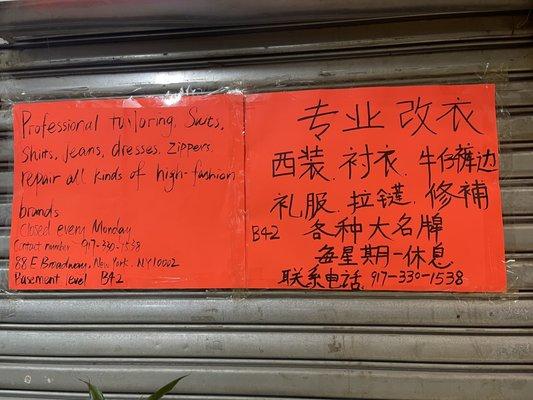 Professional tuiloring. Suts,
Shirts, jeans, dresses. Zippers.
repair all kinds of high-fashion
brands
Closed every Monday
Contact number 917-330-1538
88 E Broadway, New York, NY10002
Basement level B42
专业改衣
西装.衬衣.牛仔裤边
礼服.拉鏈.修補
B42 各种大名牌
每星期一休息
联系电话.917-330-1538